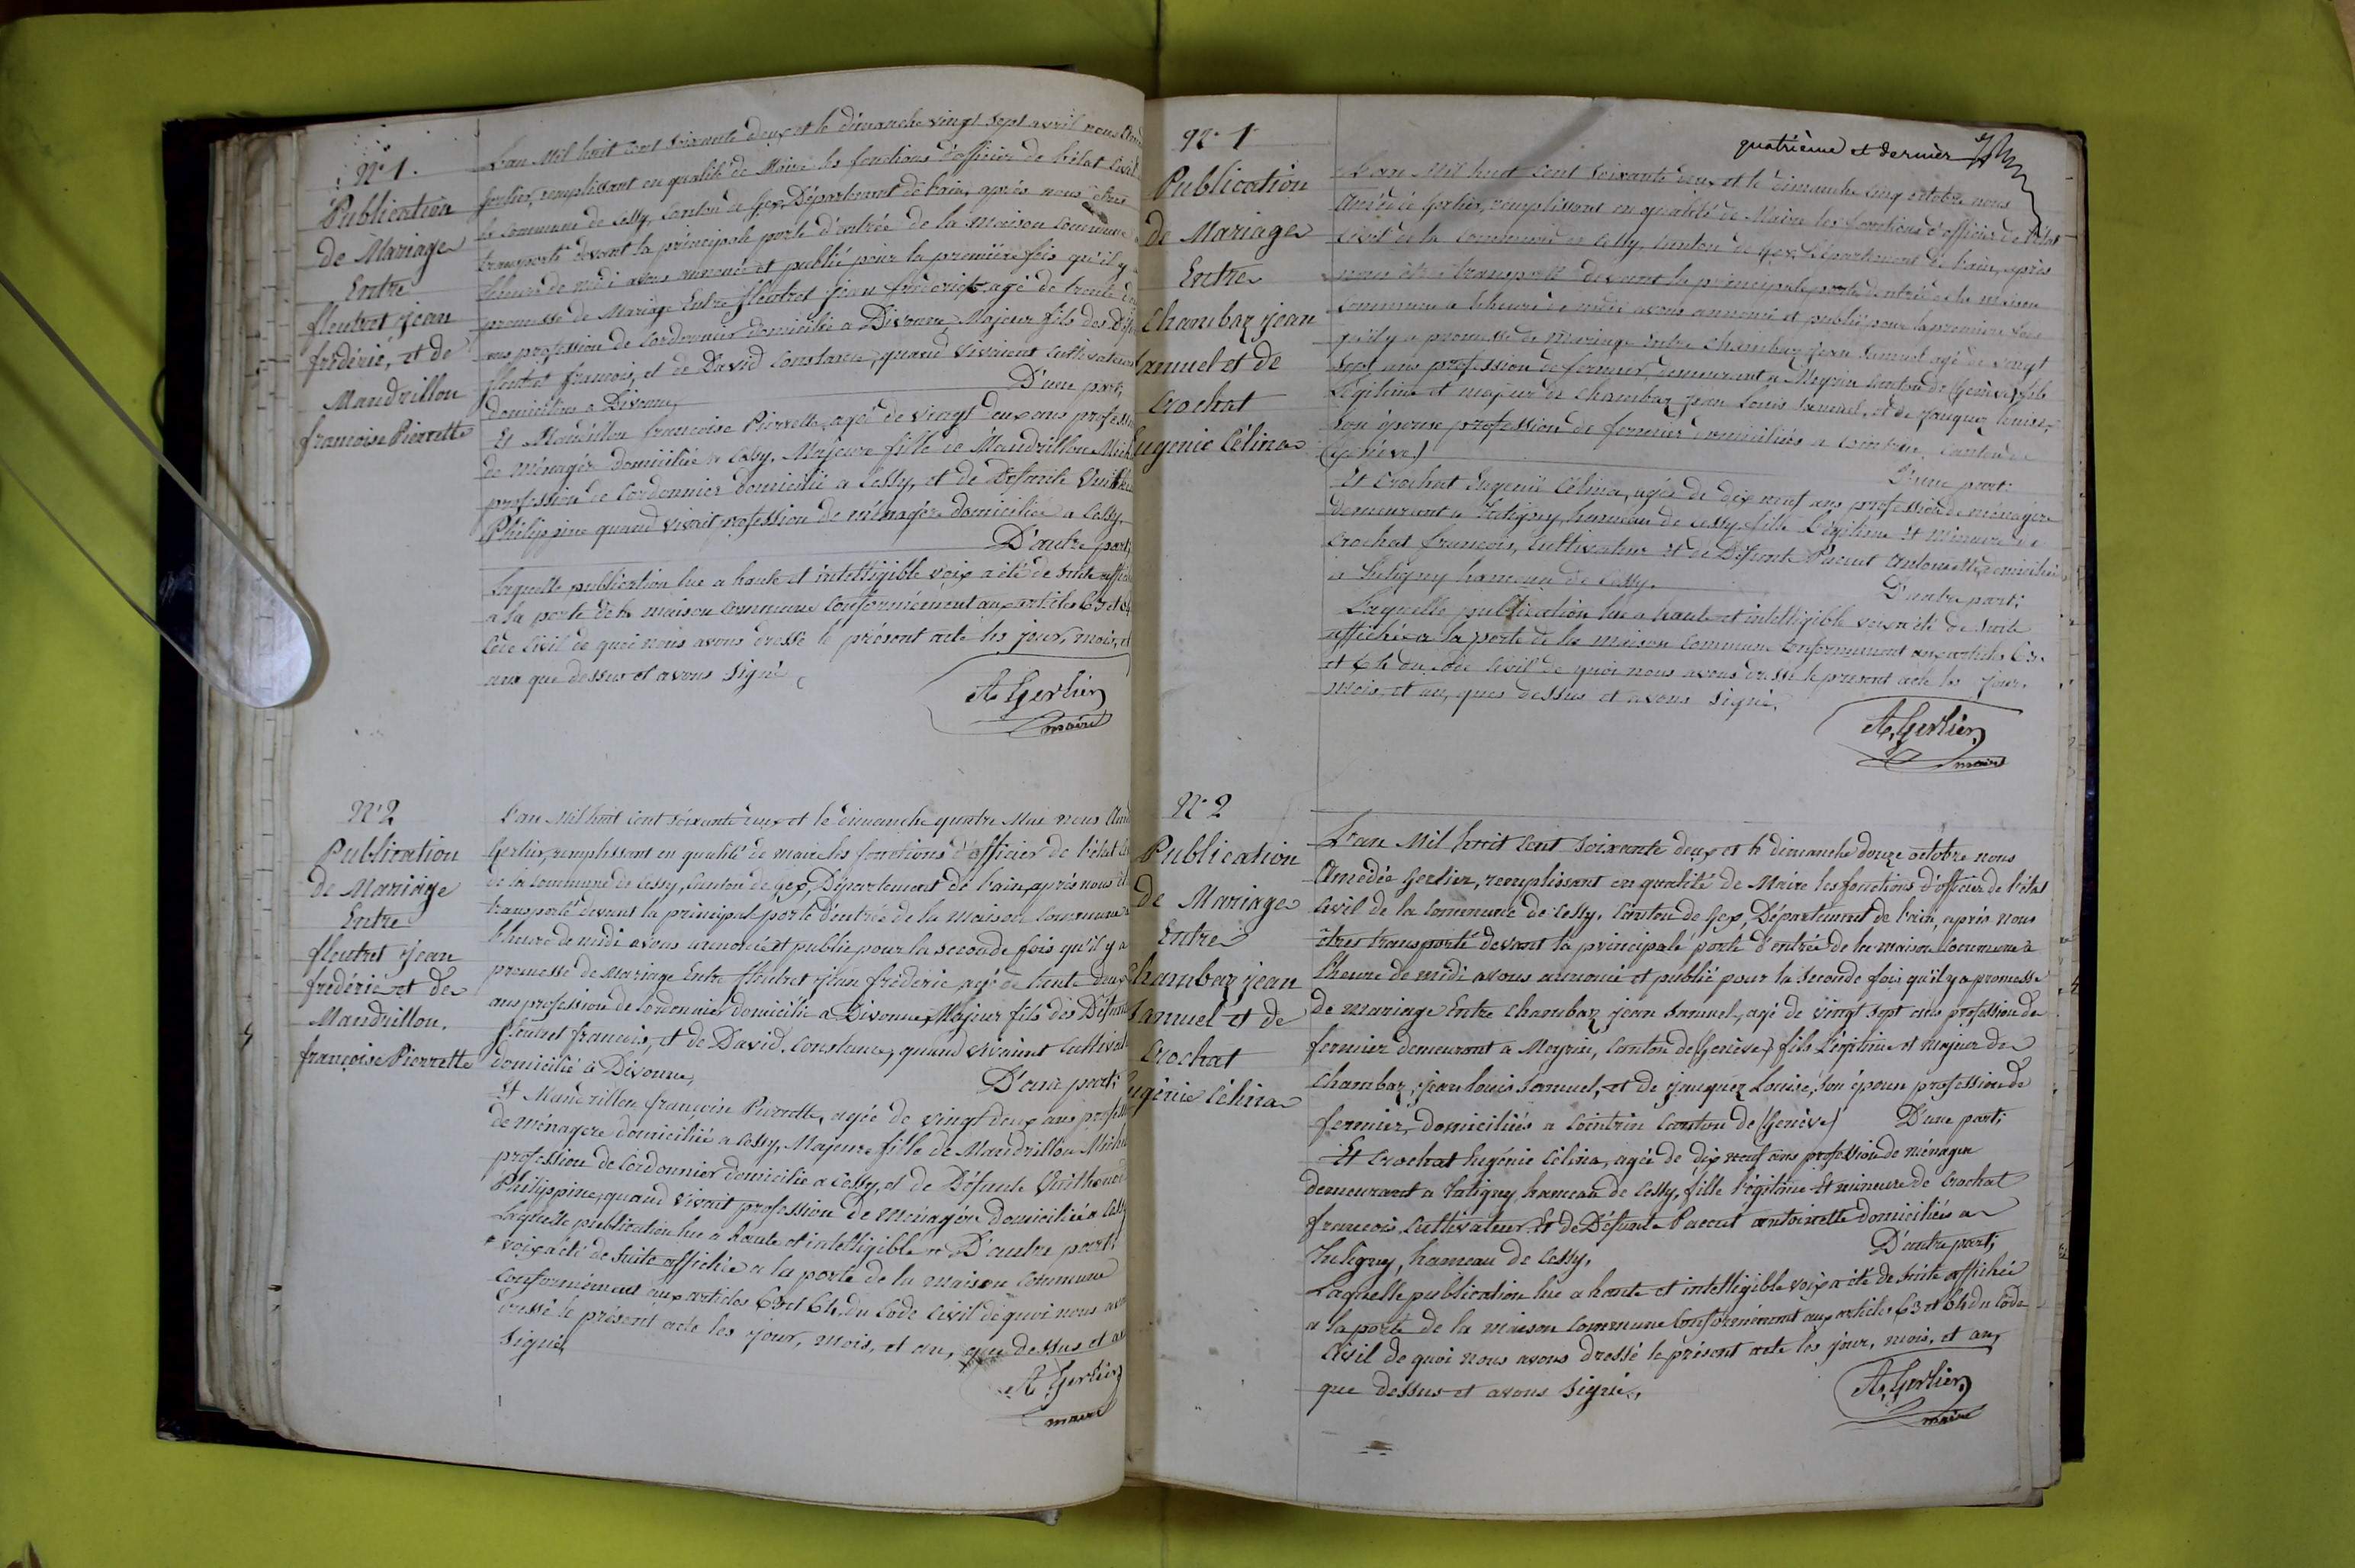 N° 1.
Publication
de Mariage
Entre
fleutret jean
frédéric, et de
Mandrillon
francoise Pierrette
L'an Mil huit cent soixante deux et le dimanche vingt sept avril nous
Gerlier, remplissant en qualité de Maire les fonctions d'officier de l'état Civil
la Commune de Cessy, Canton de Gex, Département de l'ain, après nous être
transporté devant la principale porte d'entrée de la Maison Commune
l'heure de midi avons annoncé et publié pour la première fois qu'il y
promesse de Mariage Entre fleutret jean fréderic agé de trente
ans profession de Cordonnier domicilié a Divonne, Majeur fils des
fleutret francois, et de David Constance, quand vivaient cultivateurs
domiciliés a Divonne, D'une part,
Et Mandrillon francoise Pierrette, agée de vingt deux ans
de Ménagère domiciliée a Cessy, Majeure fille de Mandrillon
profession de Cordonnier domicilié a Cessy, et de Défunte
Philippine quand vivait profession de ménagère domiciliée a Cessy.
D'autre part,
Laquelle publication lue a haute et intelligible voix a été de suite
a la porte de la maison Commune Conformément aux articles 63 et 64
Code Civil de quoi nous avons dressé le présent acte les jour, mois, et
an que dessus et avons signé
A. Gerlier
maire
N° 2
Publication
de Mariage
Entre
fleutret jean
frédéric et de
Mandrillon.
françoise Pierrette
L'an Mil huit cent soixante deux et le dimanche quatre Mai nous
Gerlier, remplissant en qualité de maire les fonctions d'officier de l'état
de la Commune de Cessy, Canton de Gex, Département de l'ain, après nous
transporté devant la principale porte d'entrée de la Maison Commune
l'heure de midi avons annoncé et publié pour la seconde fois qu'il y a
promesse de Mariage Entre fleutret jean fréderic agé de trente deux
ans profession de Cordonnier domicilié a Divonne, Majeur fils des
fleutret francois, et de David, Constance, quand vivaient
domicilié a Divonne, D'une part;
Et Mandrillon, françoise Pierrette, agée de vingt deux ans
de ménagère domiciliée a Cessy, Majeure fille de Mandrillon
profession de Cordonnier domicilié a Cessy, et de Défunte
Philippine, quand vivait profession de Ménagère domiciliée a
Laquelle publication lue a haute et intelligible D'autre part;
voix a été de suite affichée a la porte de la maison Commune
Conformément aux articles 63 et 64 du Code Civil de quoi nous
dressé le présent acte les jour, mois, et an, que dessus et
signé
A. Gerlier
maire
quatrième et dernier
N° 1
Publication
de Mariage
Entre
Chambaz jean
Samuel et de
Crochat
Eugenie Célina
L'an Mil huit cent soixante deux et le dimanche cinq octobre nous
Amédée Gerlier, remplissant en qualité de Maire les fonctions d'officier de l'état
Civil de la Commune de Cessy, Canton de Gex, Département de l'ain, après
nous être transporté devant la principale porte d'entrée de la maison
Commune a l'heure de midi avons annoncé et publié pour la premiere fois
qu'il y a promesse de Mariage Entre Chambaz jean Samuel agé de vingt
sept ans profession de fermier, demeurant a Meyrin Canton de (Genève) fils
Légitime et majeur de Chambaz jean Louis Samuel, et de jauquez Louise,
son épouse profession de fermier domiciliés a Cointrin, Canton de
(Genève) D'une part;
Et Crochat Eugénie Célina, agée de dix neuf ans profession de ménagère
demeurant a Tutigny, hameau de Cessy, fille Légitime et Mineure de
Crochat francois, Cultivateur et de Défunte Pacout Antoinette domiciliés
a Tutigny hameau de Cessy. D'autre part;
Laquelle publication lue a haute et intelligible voix a été de suite
affichée a la porte de la maison Commune Conformément aux articles 63
et 64 du Code Civil de quoi nous avons dressé le present acte les jour,
mois, et an, que dessus et avons signé,
A. Gerlier
maire
N° 2
Publication
de Mariage
Entre
Chambaz jean
Samuel et de
Crochat
Eugénie Célina
L'an Mil huit cent soixante deux et le dimanche douze octobre nous
Amédée Gerlier, remplissant en qualité de Maire les fonctions d'officier de l'état
Civil de la Commune de Cessy, Canton de Gex, Département de l'ain, après nous
être transporté devant la principale porte d'entrée de la maison Commune a
l'heure de midi avons annoncé et publié pour la seconde fois qu'il y a promesse
de mariage Entre Chambaz jean Samuel, agé de vingt sept ans profession de
fermier demeurant a Meyrin, Canton de (Genève) fils Légitime et majeur de
Chambaz, jean Louis Samuel, et de jauquez Louise, son épouse profession de
fermier, domiciliés a Cointrin Canton de (Genève) D'une part;
Et Crochat Eugénie Célina, agée de dix neuf ans profession de ménagère
demeurant a Tutigny hameau de Cessy, fille Légitime et mineure de Crochat
francois Cultivateur Et de Défunte Pacout antoinette domiciliés a
Tutigny, hameau de Cessy. D'autre part;
Laquelle publication lue a haute et intelligible voix a été de suite affichée
a la porte de la maison Commune Conformément aux articles 63 et 64 du Code
Civil de quoi nous avons dressé le présent acte les jour, mois, et an,
que dessus et avons signé.,
A. Gerlier
maire